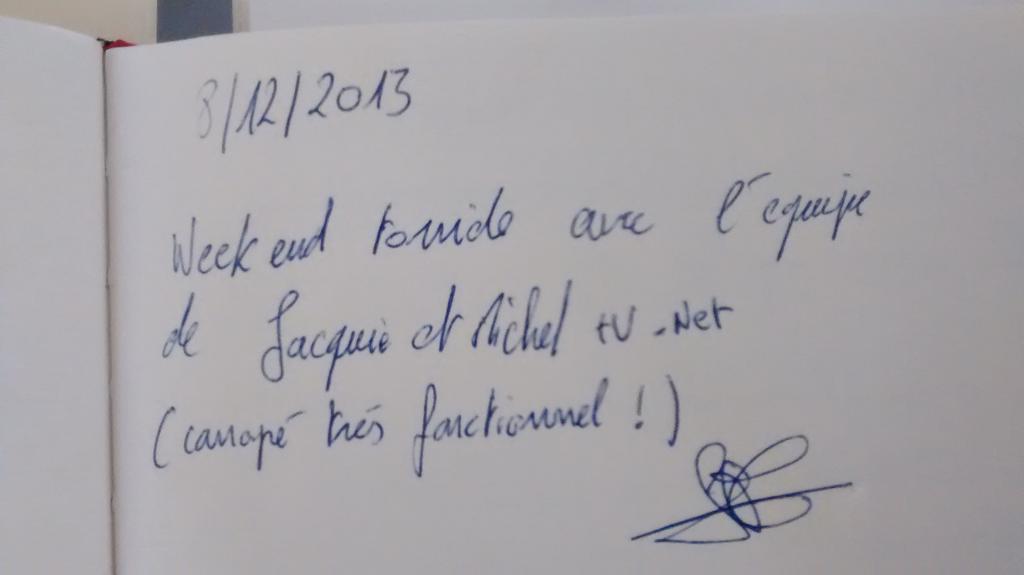 8/12/2013
Week end torride avec l'équipe
de Jacquie et Michel tv.Net
(canapé très fonctionnel !)